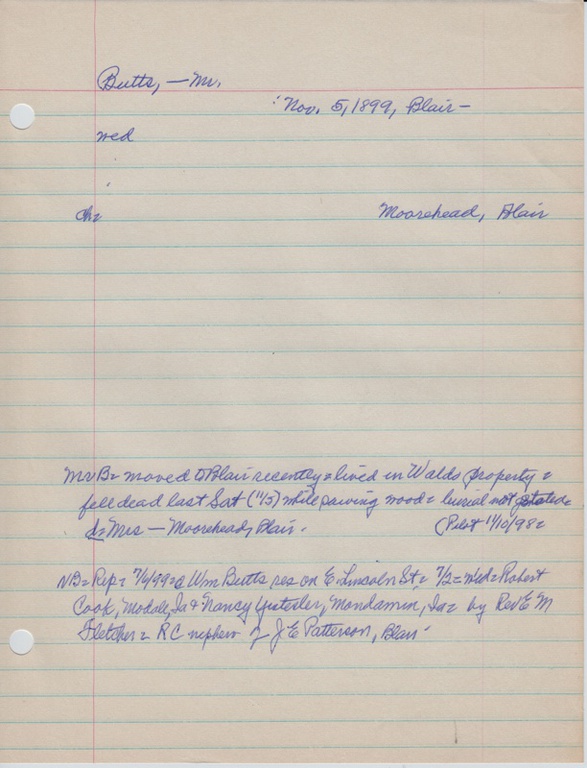 Butts, — Mr.
Nov. 5, 1899, Blair —
wed
ch=
Moorehead, Blair
Mr B= moved to Blair recently = lived in Waldo property =
fell dead last Sat (11/5) while sawing wood = burial not stated =
d= Mrs — Moorehead, Blair. (Pilot 11/10/98=
VB= Rep= 7/6/99= @ Wm Butts res on E. Lincoln St = 7/2= wed= Robert
Cook, Modale, Ia & Nancy Mondamin, Ia= by Rev E M
Fletcher = RC nephew of J E Patterson, Blair